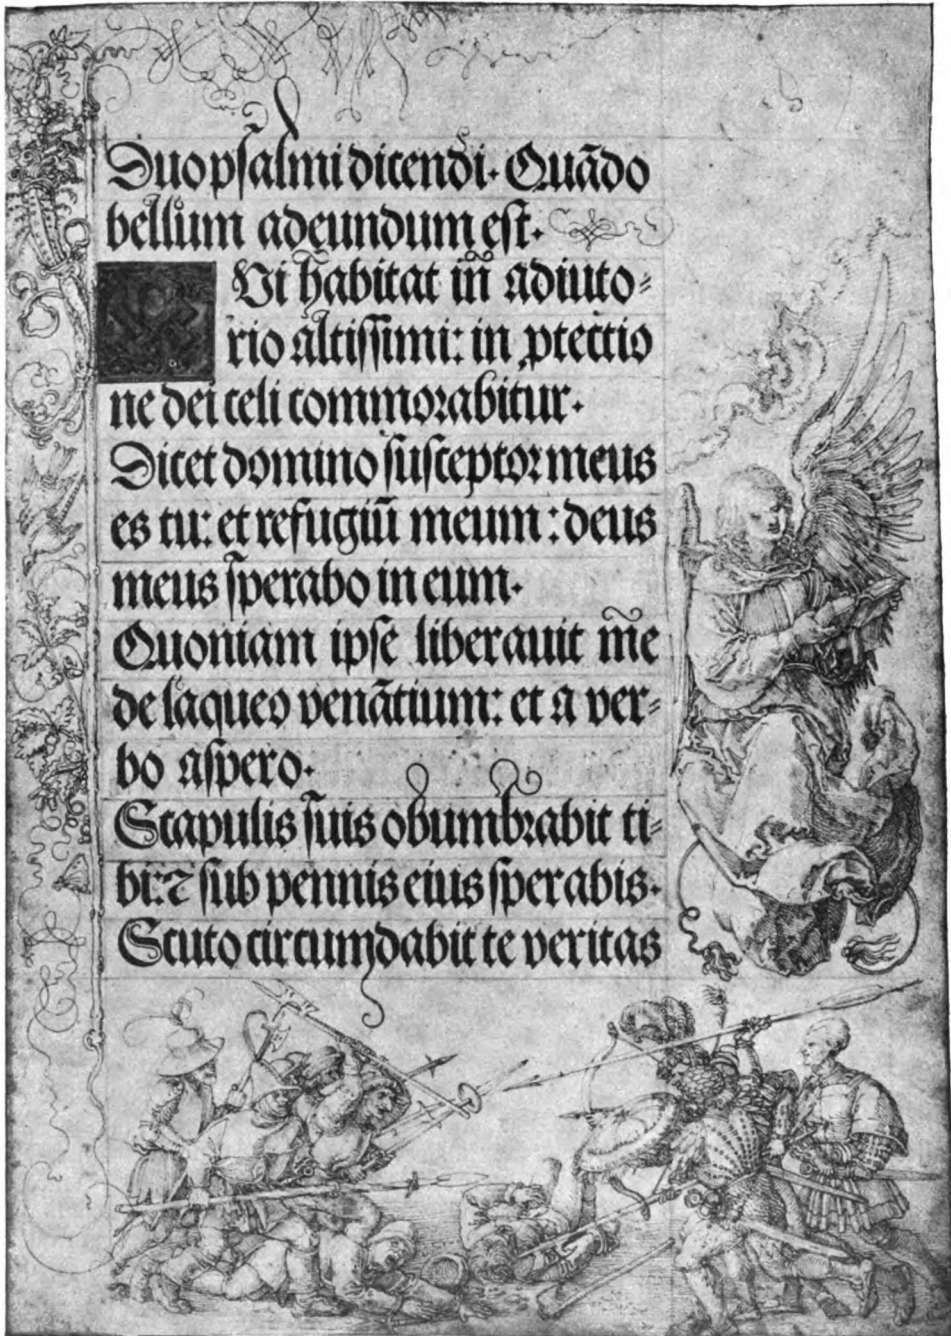 Duo psalmi dicendi. Quādo
bellum adeundum est.
Ui habitat in adiuto⸗
rio altissimi: in ꝓtectio
ne dei celi commorabitur.
Dicet domino susceptor meus
es tu: et refugiū meum: deus
meus sperabo in eum.
Quoniam ipse liberauit me
de laqueo venātium: et a ver⸗
bo aspero.
Scapulis suis obumbrabit ti⸗
bi: ⁊ sub pennis eius sperabis.
Scuto circumdabit te veritas